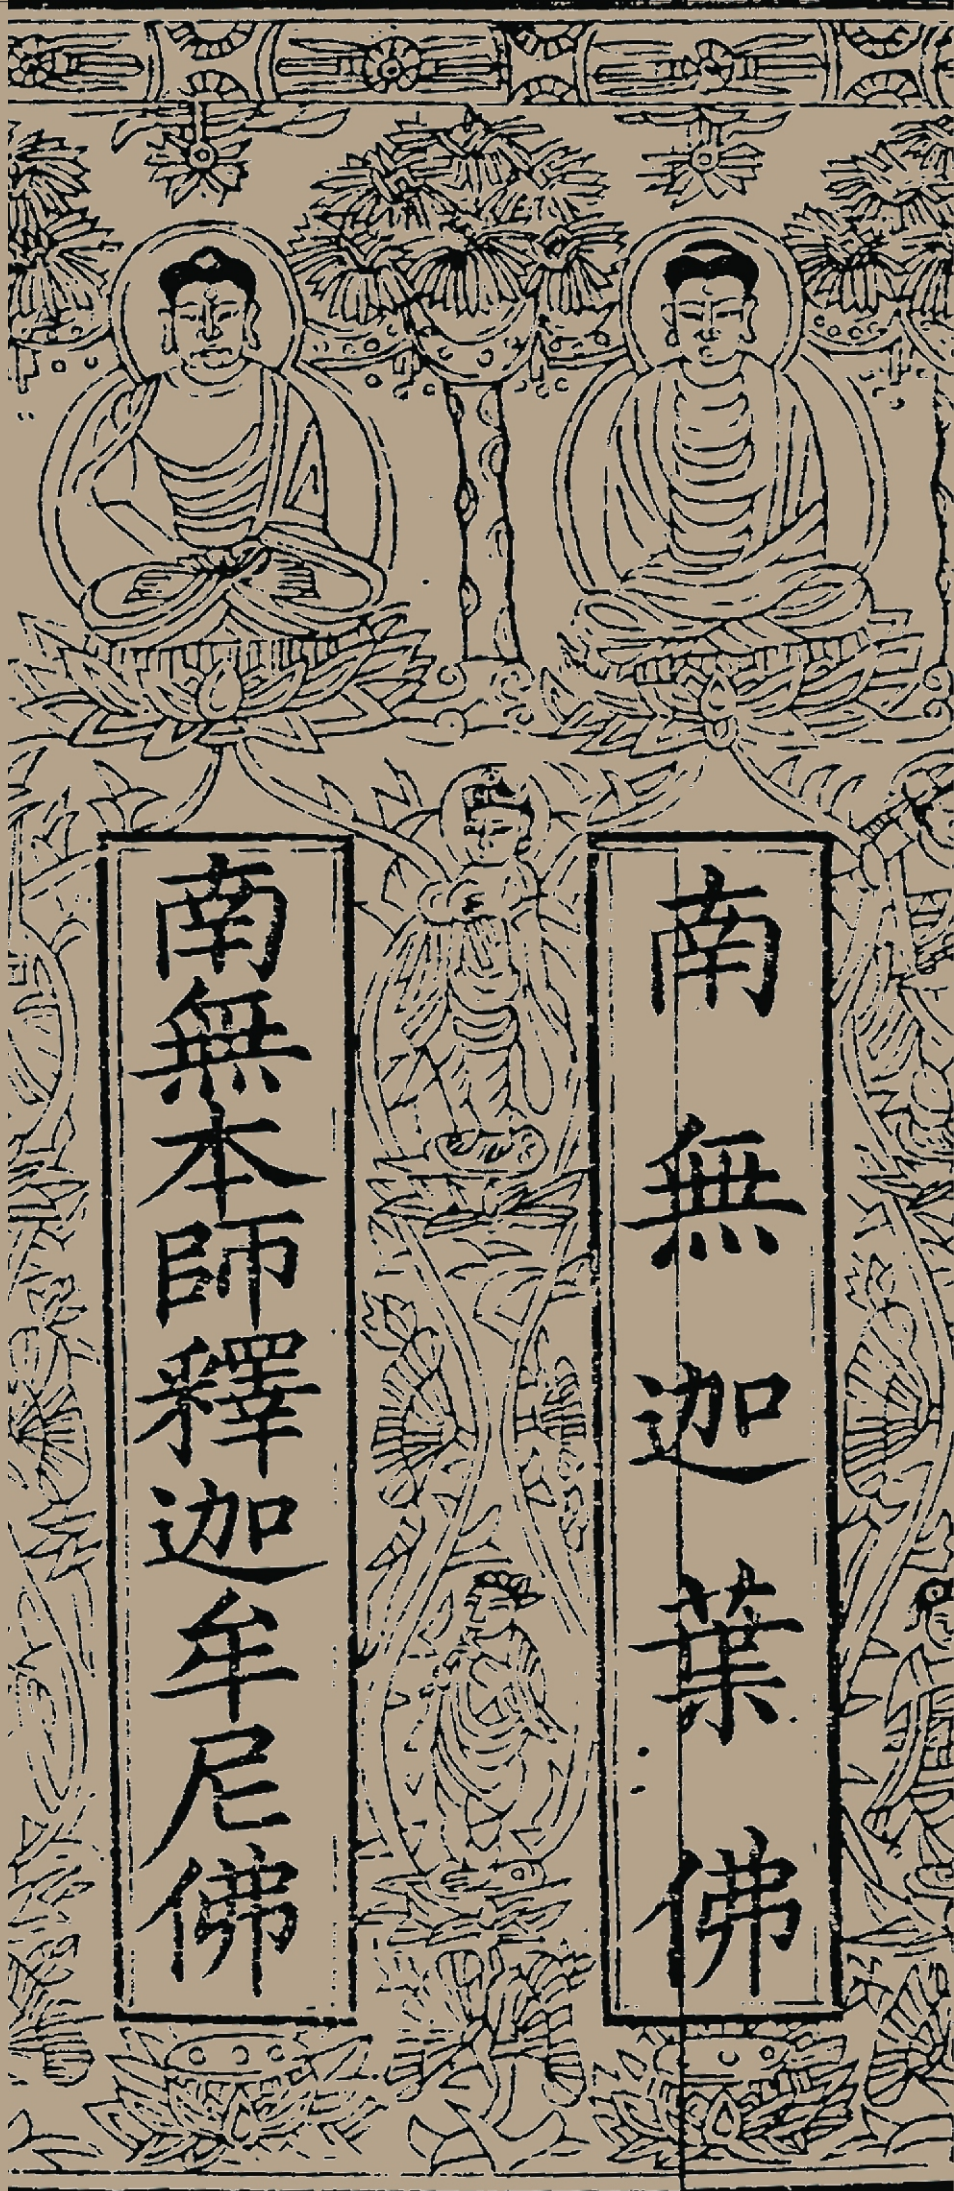 南無迦葉佛
南無本師釋迦牟尼佛